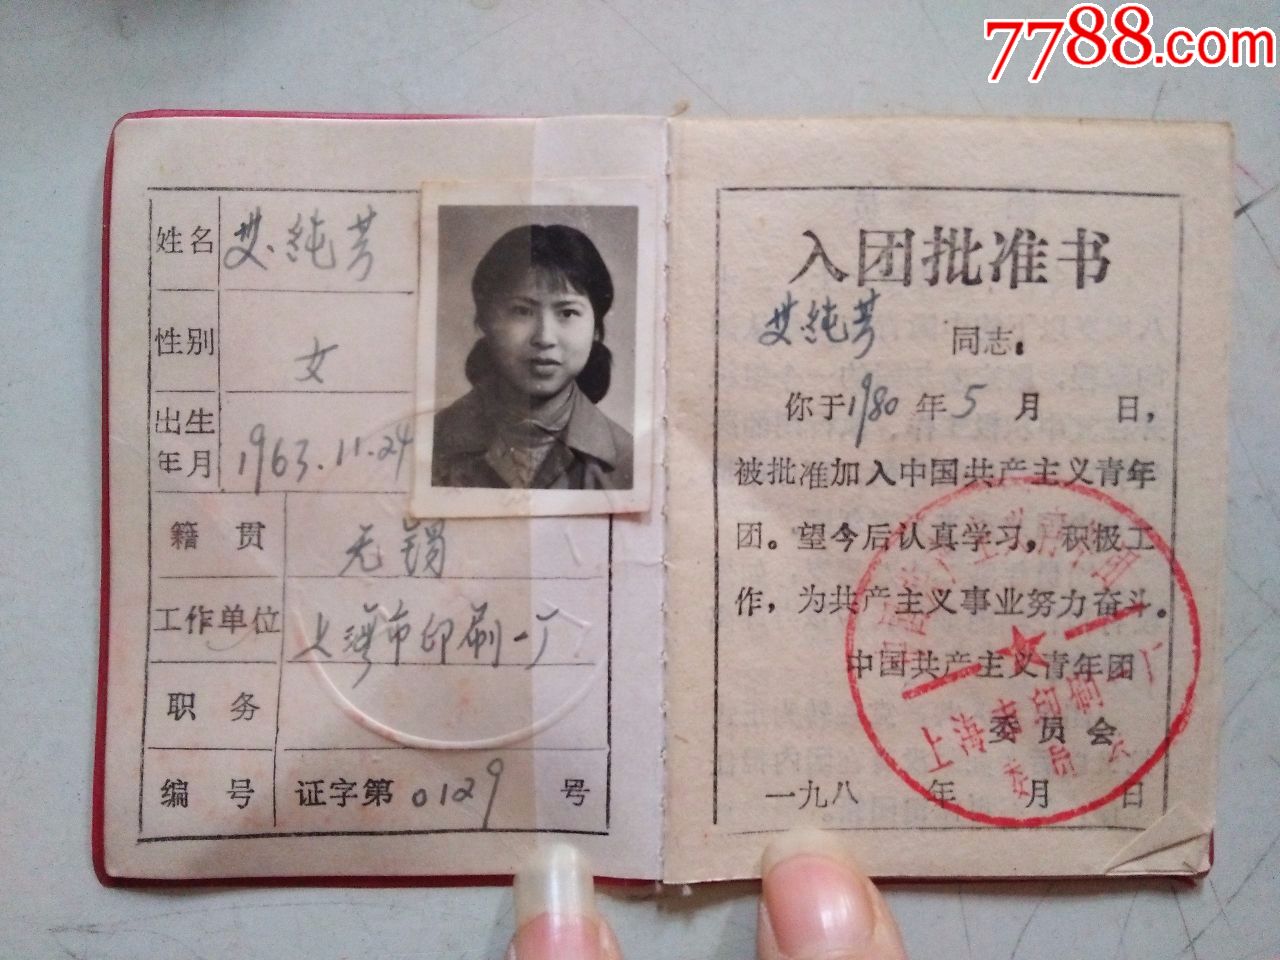 7788.com
姓名 艾纯芳
性别 女
出生年月 1963.11.24
籍贯 无锡
工作单位 上海市印刷一厂
职务
编号 证字第0129号
入团批准书
艾纯芳 同志：
你于1980年5月 日，
被批准加入中国共产主义青年
团。望今后认真学习，积极工
作，为共产主义事业努力奋斗。
中国共产主义青年团
委员会
一九八 年 月 日
中国共产主义青年团
上海市印刷一厂
委员会